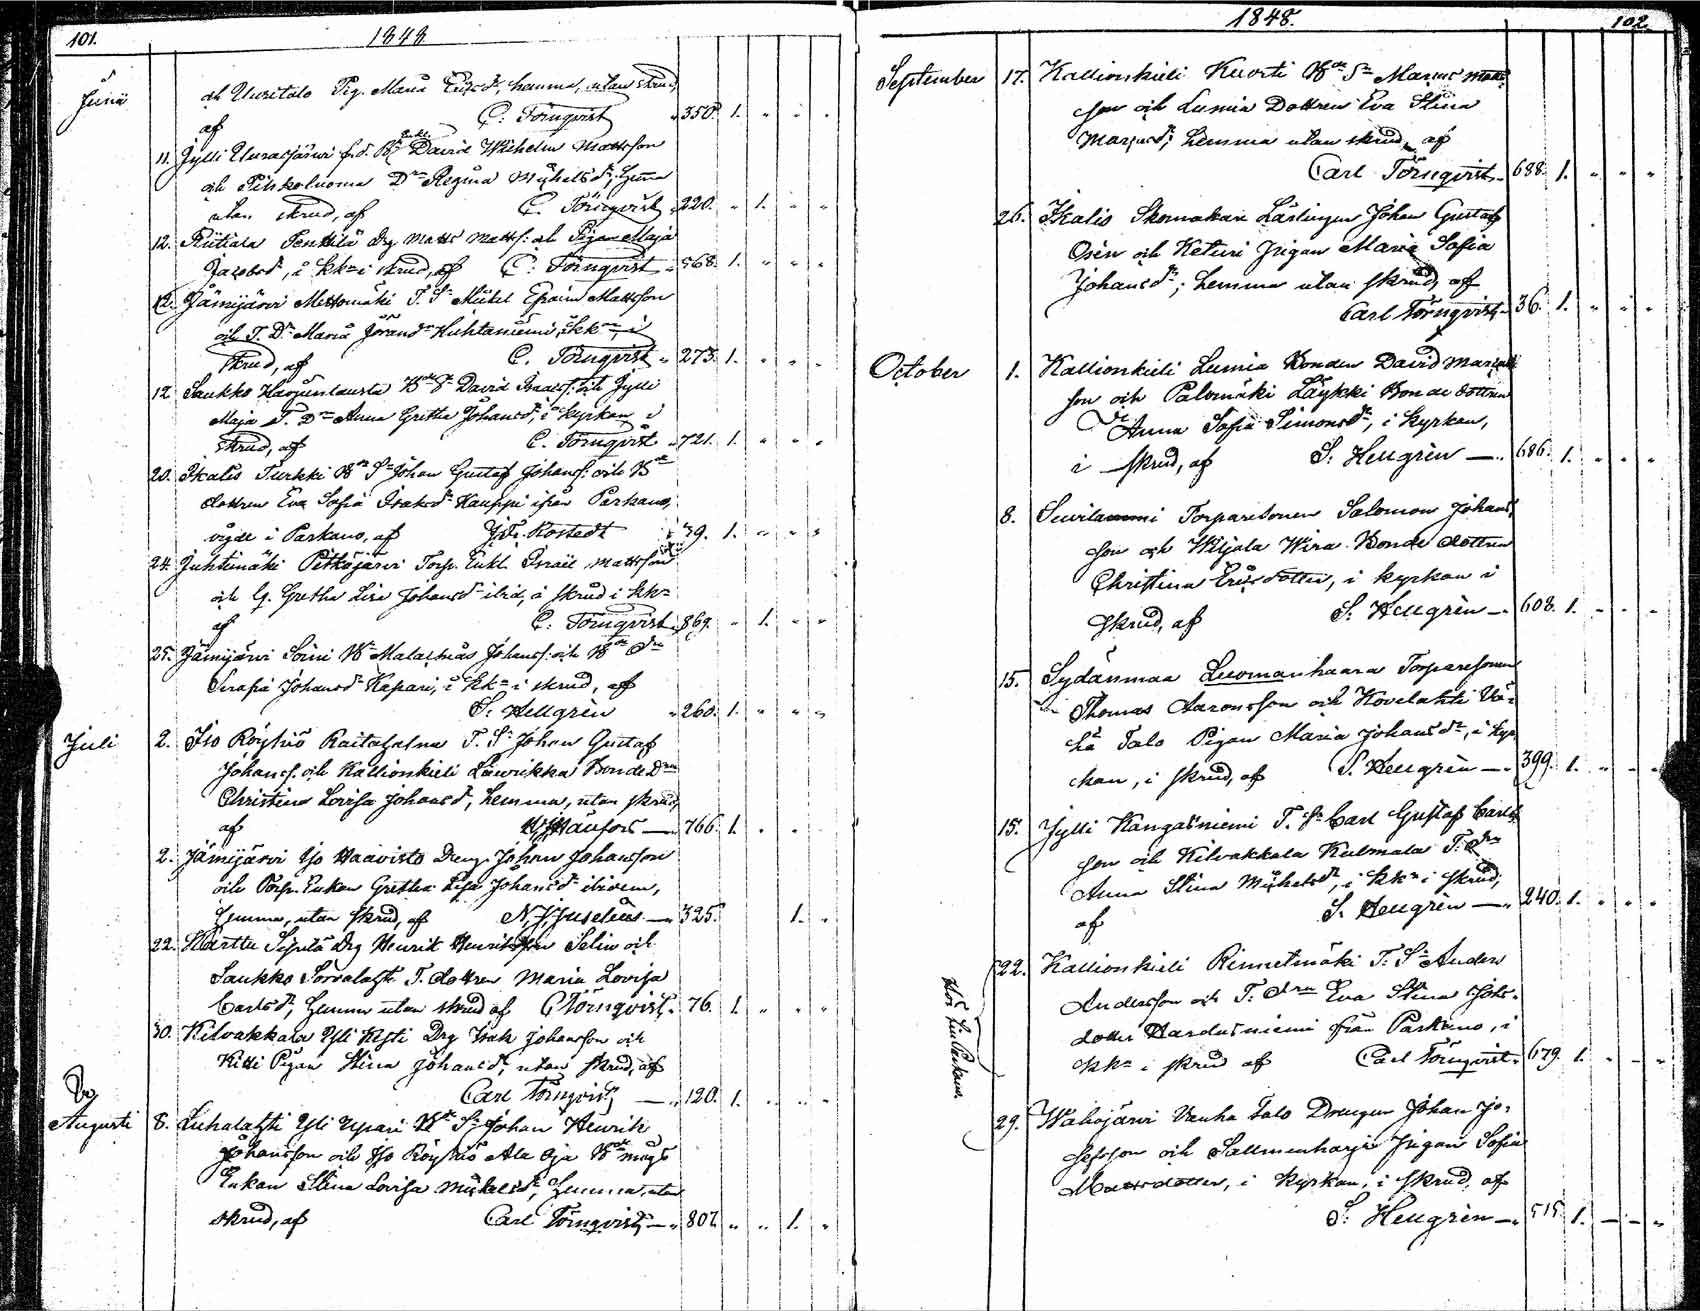 101. 1848
Junii och Uusitalo Pig. Maria Ericsd:, hemma, utan skrud,
af C: Törnqvist 350. 1.
11. Jylli Uurasjärvi f.d. B: Enkl. David Wilhelm Mattsson
och Pihkoluoma D:n Regina Michelsd:, hemma
utan skrud, af C. Törnqvist 220. 1.
12. Riitiala Penttilä Drg Matts Mattss: och Pigan Maja
Jacobsd:, i kk:n i skrud, af C: Törnqvist 568. 1.
12. Jämijärvi Mettomäki T. S: Michel Epraim Mattsson
och T. D: Maria Jörand: Kuhtaniemi, i kk:n i
skrud, af C. Törnqvist 273. 1.
12 Saukko Harjunlausta B:de S: David Isaacss: och Jylli
Maja T. D:n Anna Gretha Johansd:, i kyrkan i
skrud, af C. Törnqvist 721. 1.
20. Ikalis Turkki B:de S:n Johan Gustaf Johanss: och B:de
dottren Eva Sofia Isaksd: Kauppi ifrån Parkano,
vigde i Parkano, af J. F. Rostedt 39. 1.
24 Juhtimäki Pitkäjärvi Torp. Enkl. Israel Mattsson
och G. Gretha Lisa Johansd: ibid, i skrud i kk:n
af C: Törnqvist 869. 1.
25. Jämijärvi Soini B:n Malachias Johanss: och B:de D:n
Serafia Johansd: Kapari, i kk:n i skrud, af
S: Hellgrèn 260. 1.
Juli 2. Iso Röyhiö Raitahalma T. S: Johan Gustaf
Johanss. och Kallionkieli Lawrikka Bonde D:n
Christina Lovisa Johansd:, hemma, utan skrud,
af 766. 1.
2. Jämijärvi Yjo Haavisto Dreng. Johan Johansson
och Torp. Enkan Gretha Lisa Johansd: ibidem,
hemma, utan skrud, af N. J. Juselius 325. 1.
22. Kärttu Sipilä Drg Henrik Henriksson Selin och
Saukko Sorvalahti T. dottren Maria Lovisa
Carlsd:, hemma utan skrud af C Törnqvist 76. 1.
30. Kilvakkala Yli Kesti Drg Isak Johansson och
Kitti Pigan Stina Johansd:, utan skrud, af
Carl Törnqvist 120. 1.
Augusti 8. Luhalahti Yli Upari B:de S:n Johan Henrik
Johansson och Iso Röyhiö Ala Oja B:de mågs
Enkan Stina Lovisa Michelsd:, hemma, utan
skrud, af Carl Törnqvist 807. 1.
1848. 102.
September 17. Kallionkieli Kuorti B:de S:n Marcus Matts
son och Lumia Dottren Eva Stina
Marcusd:, hemma utan skrud, af
Carl Törnqvist 688. 1.
26. Ikalis Skomakare Lärlingen Johan Gustaf
Osèn och Keturi Pigan Maria Sofia
Johansd:; hemma utan skrud, af
Carl Törnqvist 36. 1.
October 1. Kallionkieli Lumia Bonden David Marcus
son och Palomäki Läykki Bonde dottren
Anna Sofia Simonsd:, i kyrkan,
i skrud, af S. Hellgrèn 686. 1.
8. Torparesonen Salomon Johans
son och Wiljala Wira Bonde dottren
Christina Ericsdotter, i kyrkan i
skrud, af S. Hellgrèn 608. 1.
15. Sydänmaa Luomanhaara Torparesonen
Thomas Aaronsson och Kovelahti Van
ha Talo Pigan Maria Johansd:, i kyr
kan, i skrud, af S. Hellgrèn 399. 1.
15. Jylli Kangasniemi T. S:n Carl Gustaf Carls
son och Kilvakkala Kulmala T. D:n
Anna Stina Michelsd:, i kk:n i skrud,
af S. Hellgrèn 240. 1.
22. Kallionkieli Rinnetmäki T: S:n Anders
Andersson och T: D:n Eva Stina Johs
dotter Hardusniemi från Parkano, i
kk:n i skrud af Carl Törnqvist 679. 1.
29. Wahojärvi Vanha Talo Drengen Johan Jo
sefsson och Sallmenharju Pigan Sofia
Mattsdotter, i kyrkan, i skrud, af
S: Hellgrèn 515. 1.